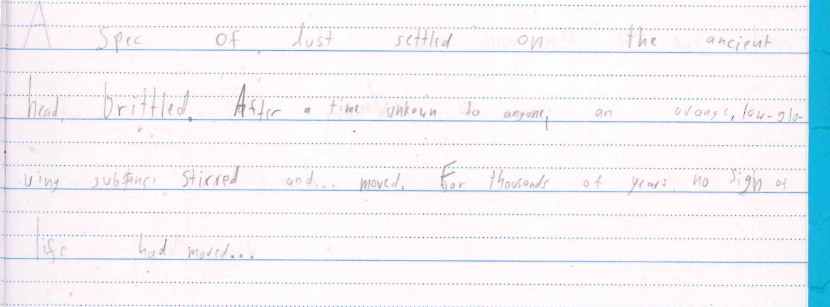 A Spec of dust settled on the ancient
head, brittled. After a time unkown to anyone, an orange, low-glo-
wing substance stirred and... moved. For thousands of years no sign of
life had moved...